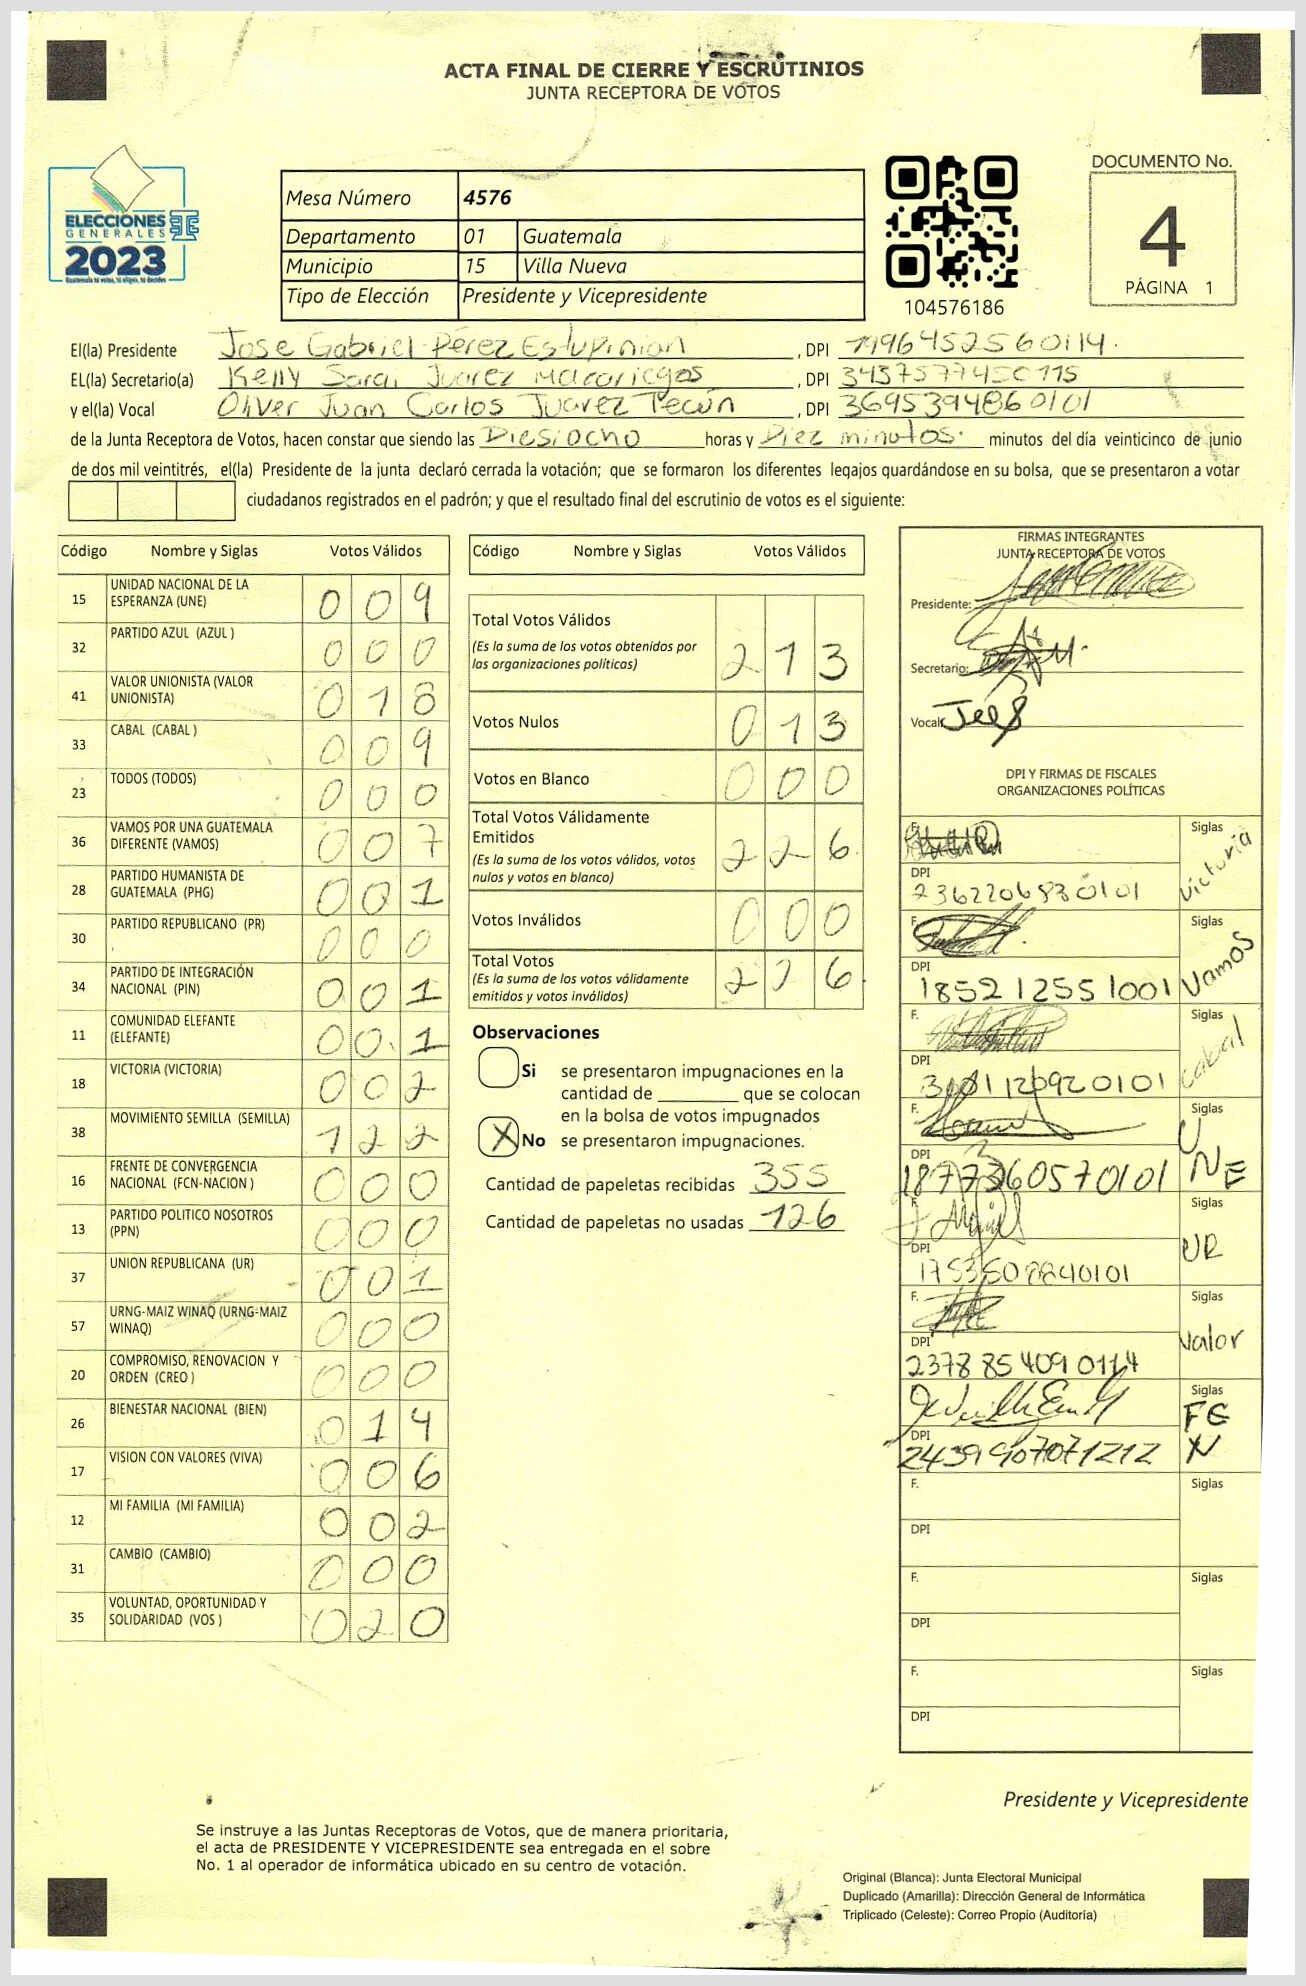 ACTA FINAL DE CIERRE Y ESCRUTINIOS
JUNTA RECEPTORA DE VOTOS
ELECCIONES
GENERALES
2023
Guatemala tú votas, tú eliges, tú decides
Mesa Número 4576
Departamento 01 Guatemala
Municipio 15 Villa Nueva
Tipo de Elección Presidente y Vicepresidente
104576186
DOCUMENTO No.
4
PÁGINA 1
El(la) Presidente Jose Gabriel Pérez Estupinian, DPI 1996452560114.
EL(la) Secretario(a) Kelly Sarai Juarez Mazariegos, DPI 3437577450115
y el(la) Vocal Oliver Juan Carlos Juarez Tecún, DPI 3695394860101
de la Junta Receptora de Votos, hacen constar que siendo las Diesiocho horas y Diez minutos. minutos del día veinticinco de junio
de dos mil veintitrés, el(la) Presidente de la junta declaró cerrada la votación; que se formaron los diferentes legajos quardándose en su bolsa, que se presentaron a votar
ciudadanos registrados en el padrón; y que el resultado final del escrutinio de votos es el siguiente:
Código Nombre y Siglas Votos Válidos
15 UNIDAD NACIONAL DE LA ESPERANZA (UNE) 0 0 9
32 PARTIDO AZUL (AZUL ) 0 0 0
41 VALOR UNIONISTA (VALOR UNIONISTA) 0 1 8
33 CABAL (CABAL ) 0 0 9
23 TODOS (TODOS) 0 0 0
36 VAMOS POR UNA GUATEMALA DIFERENTE (VAMOS) 0 0 7
28 PARTIDO HUMANISTA DE GUATEMALA (PHG) 0 0 1
30 PARTIDO REPUBLICANO (PR) 0 0 0
34 PARTIDO DE INTEGRACIÓN NACIONAL (PIN) 0 0 1
11 COMUNIDAD ELEFANTE (ELEFANTE) 0 0 1
18 VICTORIA (VICTORIA) 0 0 2
38 MOVIMIENTO SEMILLA (SEMILLA) 1 2 2
16 FRENTE DE CONVERGENCIA NACIONAL (FCN-NACION ) 0 0 0
13 PARTIDO POLITICO NOSOTROS (PPN) 0 0 0
37 UNION REPUBLICANA (UR) 0 0 1
57 URNG-MAIZ WINAQ (URNG-MAIZ WINAQ) 0 0 0
20 COMPROMISO, RENOVACION Y ORDEN (CREO ) 0 0 0
26 BIENESTAR NACIONAL (BIEN) 0 1 4
17 VISION CON VALORES (VIVA) 0 0 6
12 MI FAMILIA (MI FAMILIA) 0 0 2
31 CAMBIO (CAMBIO) 0 0 0
35 VOLUNTAD, OPORTUNIDAD Y SOLIDARIDAD (VOS ) 0 2 0
Código Nombre y Siglas Votos Válidos
Total Votos Válidos 2 1 3
(Es la suma de los votos obtenidos por
las organizaciones políticas)
Votos Nulos 0 1 3
Votos en Blanco 0 0 0
Total Votos Válidamente
Emitidos 2 2 6
(Es la suma de los votos válidos, votos
nulos y votos en blanco)
Votos Inválidos 0 0 0
Total Votos 2 2 6
(Es la suma de los votos válidamente
emitidos y votos inválidos)
Observaciones
Si se presentaron impugnaciones en la
cantidad de ________ que se colocan
en la bolsa de votos impugnados
X No se presentaron impugnaciones.
Cantidad de papeletas recibidas 355
Cantidad de papeletas no usadas 126
FIRMAS INTEGRANTES
JUNTA RECEPTORA DE VOTOS
Presidente:
Secretario:
Vocal:
DPI Y FIRMAS DE FISCALES
ORGANIZACIONES POLÍTICAS
F. Siglas Victoria
DPI 2362206830101
F. Siglas Vamos
DPI 185212551001
F. Siglas Cabal
DPI
F. Siglas UNE
DPI
F. Siglas UR
DPI 1753508840101
F. Siglas Valor
DPI 2378854090114
Siglas
DPI 2439907071212
F. Siglas
DPI
F. Siglas
DPI
F. Siglas
DPI
Presidente y Vicepresidente
Se instruye a las Juntas Receptoras de Votos, que de manera prioritaria,
el acta de PRESIDENTE Y VICEPRESIDENTE sea entregada en el sobre
No. 1 al operador de informática ubicado en su centro de votación.
Original (Blanca): Junta Electoral Municipal
Duplicado (Amarilla): Dirección General de Informática
Triplicado (Celeste): Correo Propio (Auditoría)